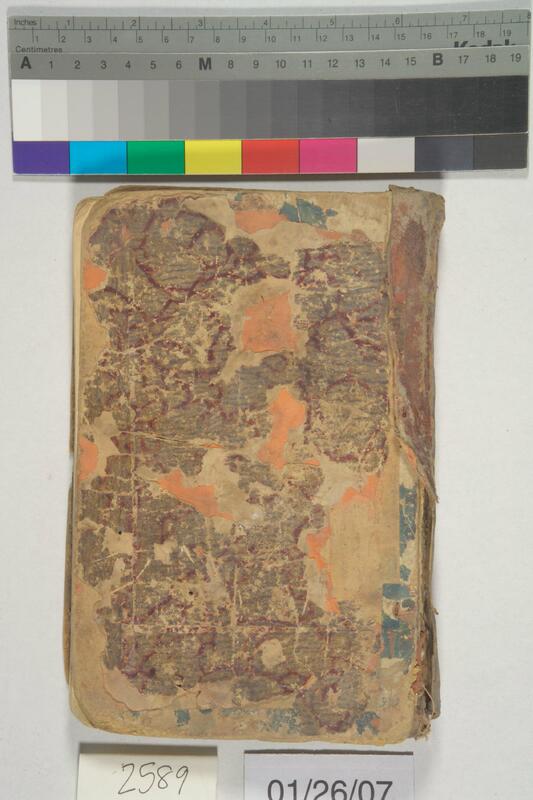 Inches 1 2 3 4 5 6 7 8
1 2 3 4 5 6 7 8 9 10 11 12 13 14 15 16 17 18 19
Centimetres
A 1 2 3 4 5 6 M 8 9 10 11 12 13 14 15 B 17 18 19
2589
01/26/07